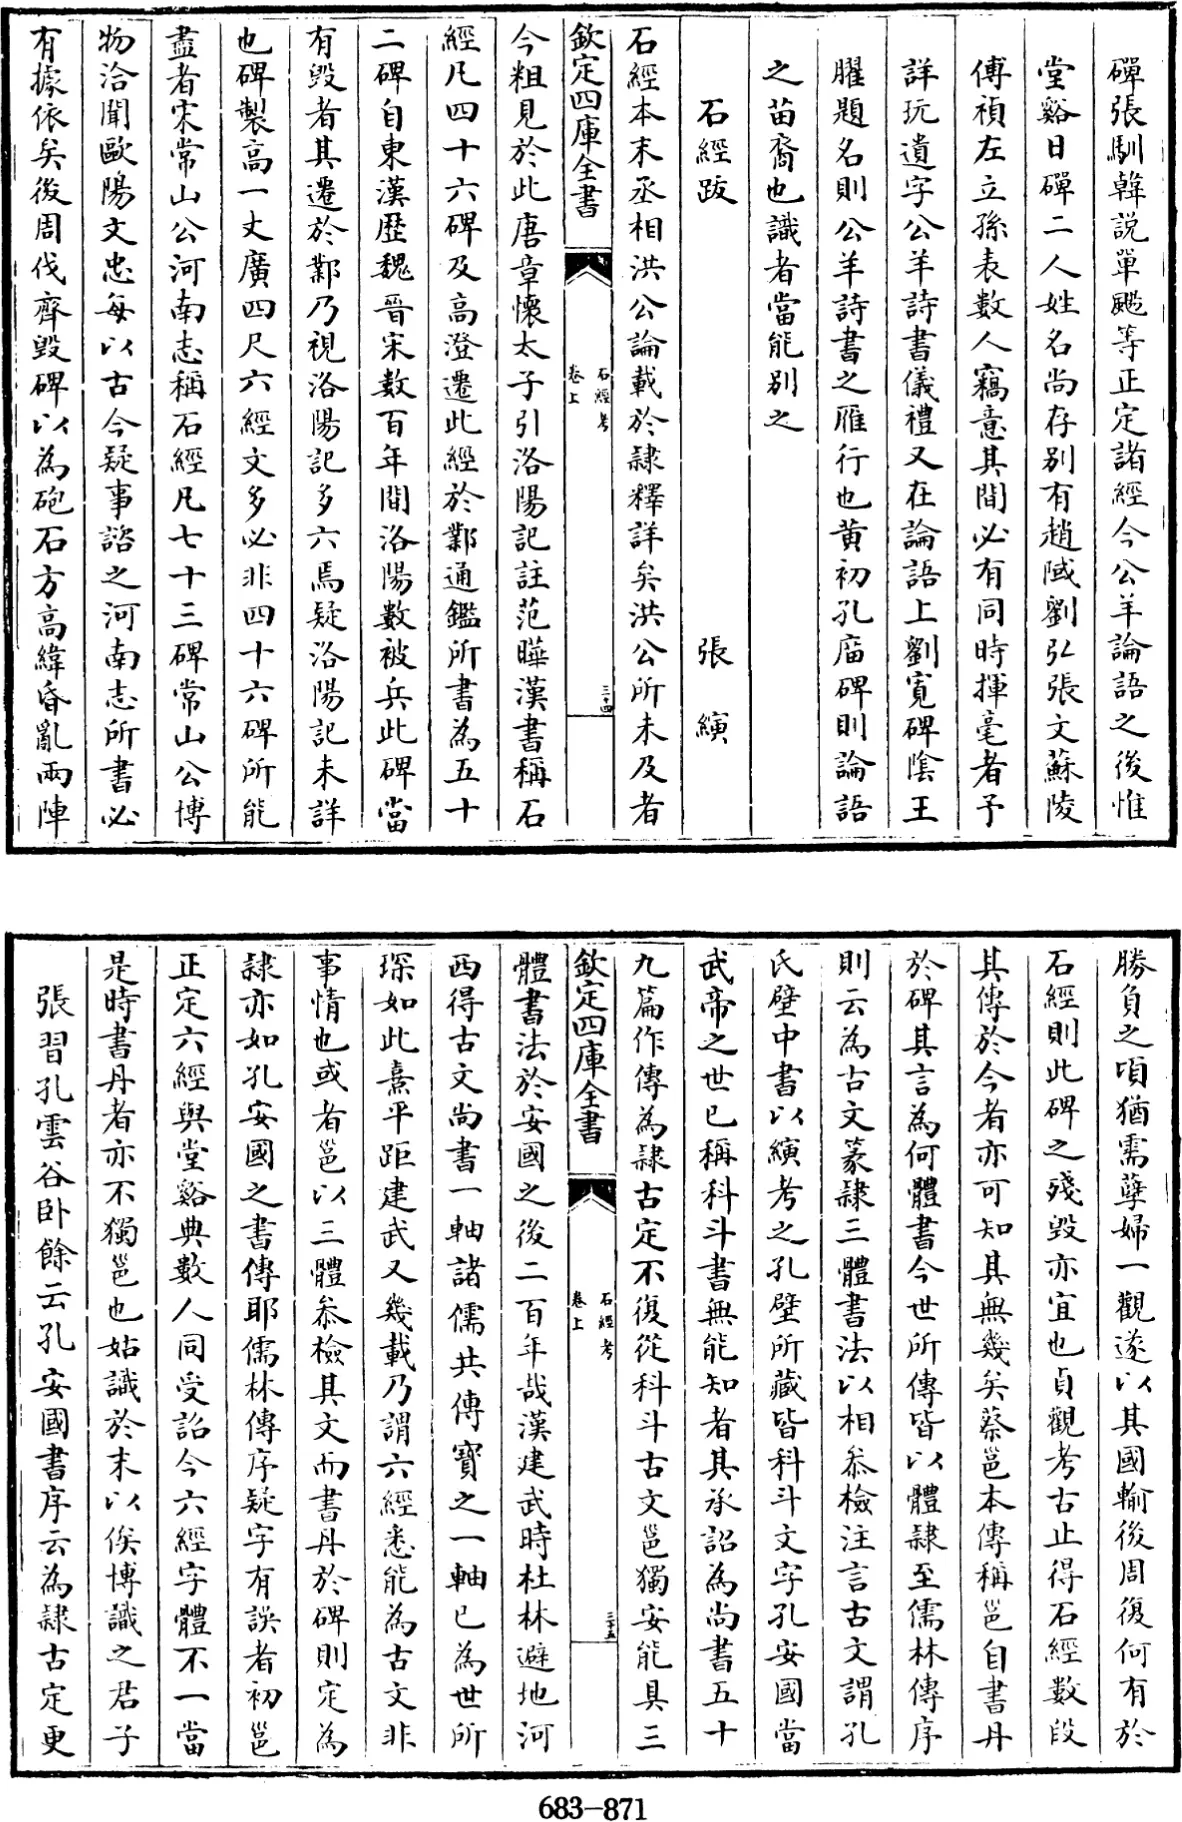 磾張馴韓説單颺等正定諸經今公羊論語之後惟
堂谿日磾二人姓名尚存别有趙䧕劉弘張文蘇陵
傅禎左立孫表數人竊意其間必有同時揮毫者予
詳玩遺字公羊詩書儀禮又在論語上劉寛碑隂王
臞題名則公羊詩書之雁行也黄初孔庙碑則論語
之苗裔也識者當能别之
石經跋 張縯
石經本末丞相洪公論載於隸釋詳矣洪公所未及者
欽定四庫全書 石經考 卷上 三十四
今粗見於此唐章懷太子引洛陽記註范曄漢書稱石
經凡四十六碑及高澄遷此經於鄴通鑑所書為五十
二碑自東漢歴魏晉宋數百年間洛陽數被兵此碑當
有毁者其遷於鄴乃視洛陽記多六焉疑洛陽記未詳
也碑製高一丈廣四尺六經文多必非四十六碑所能
盡者宋常山公河南志稱石經凡七十三碑常山公博
物洽聞歐陽文忠每以古今疑事諮之河南志所書必
有據依矣後周伐齊毁碑以為砲石方高緯昏亂兩陣
勝負之頃猶需孽婦一觀遂以其國輸後周復何有於
石經則此碑之殘毁亦宜也貞觀考古止得石經數段
其傳於今者亦可知其無幾矣蔡邕本傳稱邕自書丹
於碑其言為何體書今世所傳皆以體隸至儒林傳序
則云為古文篆隸三體書法以相叅檢注言古文謂孔
氏壁中書以縯考之孔壁所藏皆科斗文字孔安國當
武帝之世已稱科斗書無能知者其承詔為尚書五十
九篇作傳為隸古定不復從科斗古文邕獨安能具三
欽定四庫全書 石經考 卷上 三十五
體書法於安國之後二百年哉漢建武時杜林避地河
西得古文尚書一軸諸儒共傳寶之一軸已為世所
琛如此熹平距建武又幾載乃謂六經悉能為古文非
事情也或者邕以三體叅檢其文而書丹於碑則定為
隸亦如孔安國之書傳耶儒林傳序疑字有誤者初邕
正定六經與堂谿典數人同受詔今六經字體不一當
是時書丹者亦不獨邕也姑識於末以俟博識之君子
張習孔雲谷卧餘云孔安國書序云為隸古定更
683-871